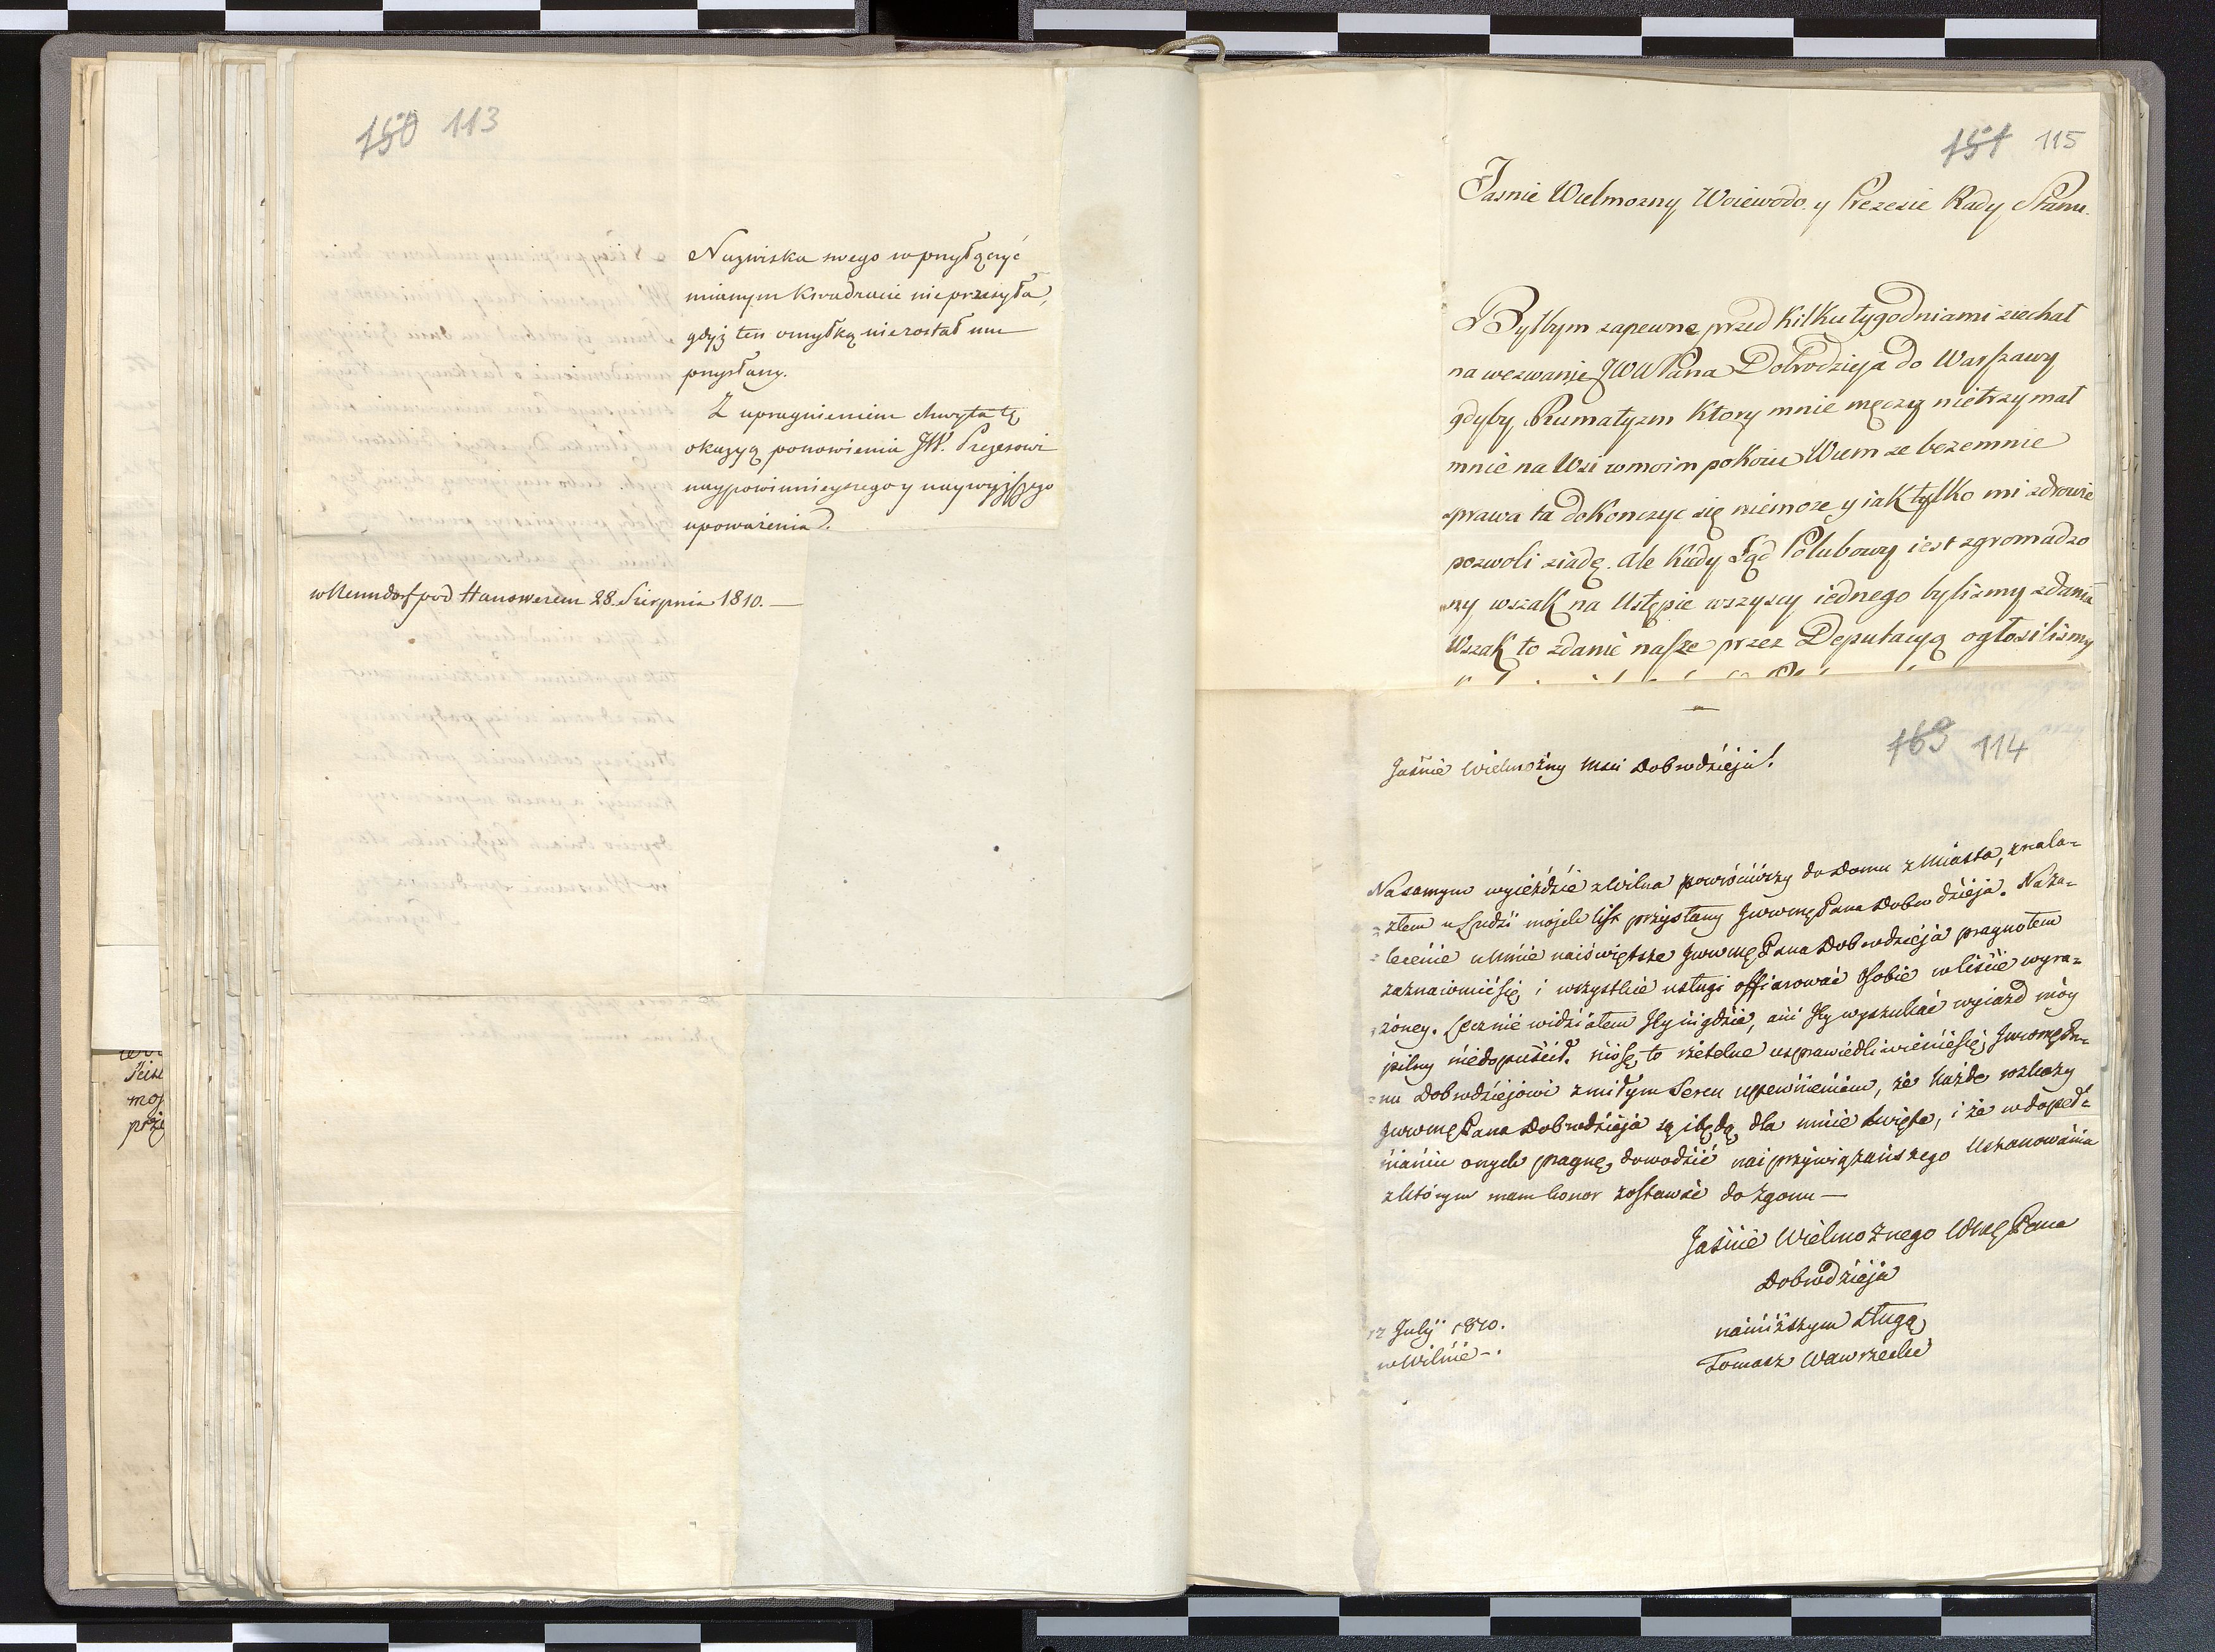 150 113
Nazwiska swego w przyłączyć
mianym Kwadracie nieprzesyła,
gdyż ten omyłką niezostał mu
przysłany.
Z upragnieniem chwyta tę
okazyą ponowienia JW. Prezesowi
naypowinnieyszego y naywyższego
upoważenia.
w Nenndorf pod Hanowerem 28. Sierpnia 1810.
151 115
Jasnie Wielmozny Woiewodo y Prezesie Rady Stanu.
Byłbym zapewne przed kilku tygodniami ziechał
na wezwanie JWWPana Dobrodzieja do Warszawy
gdyby Rumatyzm Ktory mnie męczy nietrzymał
mnie na Wsi w moim pokoiu Wiem ze bezemnie
sprawa ta dokonczyc się niemoze y iak tylko mi zdrowie
pozwoli ziadę. ale Kiedy Sąd Polubowy iest zgromadzo
ny wszak na Ustępie wszyscy iednego bylismy zdania
Wszak to zdanie nasze przez Deputacyą ogłosilismy
163 114
Jaśnie Wielmożny Mści Dobrodzieju!
Na samym wyieździe z Wilna powróciwszy do domu z Miasta, znala-
-złem u Ludzi moich list przysłany JWWMgPana Dobrodzieja. Na za-
-lecenie u Mnie naiświętsze JWWMgPana Dobrodzieja pragnołem
zaznaiomić się, i wszystkie usługi offiarować Osobie w liście wyra-
-żoney. Lecz nie widziałem Jey nigdzie, ani Jey wyszukać wyiazd móy
pilny niedopuścił. niosę to rzetelne usprawiedliwienie się JWWMgPa-
-nu Dobrodziejowi z miłym Sercu upewnieniem, że każde rozkazy
JWWMgPana Dobrodzieja są i będą dla mnie święte, i że w dopeł-
nianiu onych pragnę dowodzić naiprzywiązańszego Uszanowania
z którym mam honor zostawać do zgonu —
Jaśnie Wielmożnego WMgPana
Dobrodzieja
nainiższym sługą
Tomasz Wawrzecki
12 Julÿ 1810.
w Wilnie -.